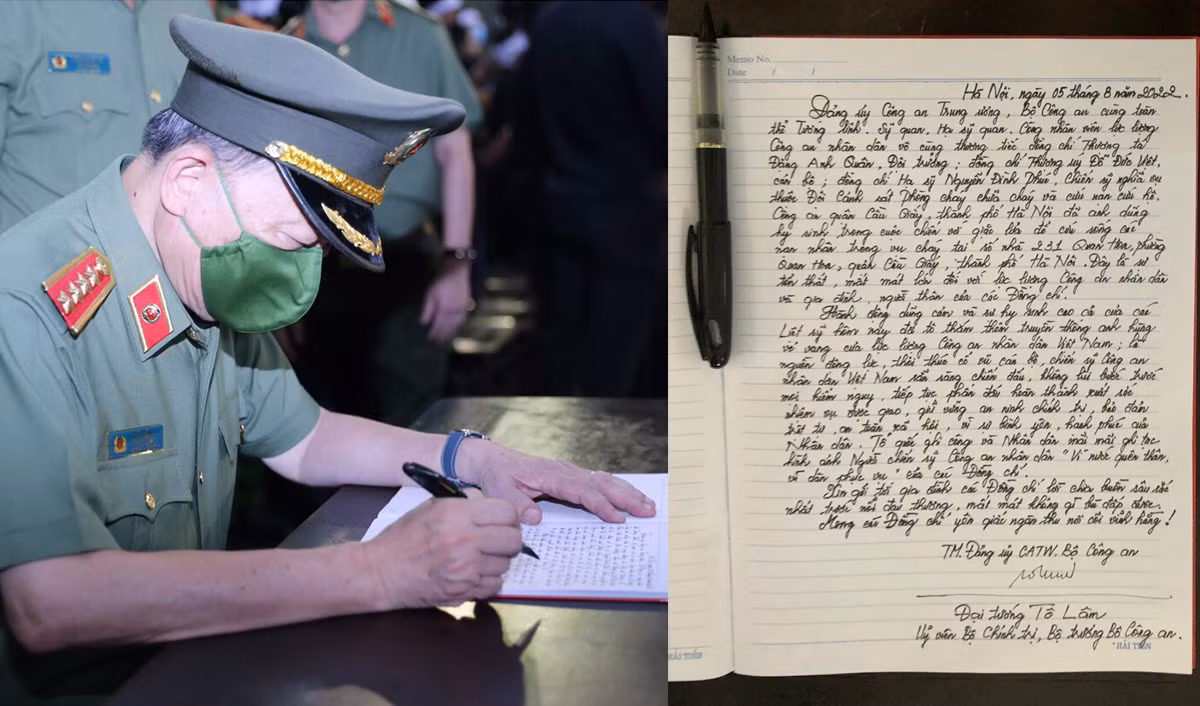 Memo No.
Date / /
Hà Nội, ngày 05 tháng 8 năm 2022.
Đảng ủy Công an Trung ương, Bộ Công an cùng toàn
thể Tướng lĩnh, Sỹ quan, Hạ sỹ quan, Công nhân viên lực lượng
Công an nhân dân vô cùng thương tiếc đồng chí Thượng tá
Đặng Anh Quân, Đội trưởng; đồng chí Thượng úy Đỗ Đức Việt,
cán bộ; đồng chí Hạ sỹ Nguyễn Đình Phúc, Chiến sỹ nghĩa vụ
thuộc Đội Cảnh sát Phòng cháy chữa cháy và cứu nạn cứu hộ,
Công an quận Cầu Giấy, thành phố Hà Nội đã anh dũng
hy sinh trong cuộc chiến với giặc lửa để cứu sống các
nạn nhân trong vụ cháy tại số nhà 231 Quan Hoa, phường
Quan Hoa, quận Cầu Giấy, thành phố Hà Nội. Đây là sự
tổn thất, mất mát lớn đối với lực lượng Công an nhân dân
và gia đình, người thân của các Đồng chí.
Hành động dũng cảm và sự hy sinh cao cả của các
Liệt sỹ hôm nay đã tô thắm thêm truyền thống anh hùng
vẻ vang của lực lượng Công an nhân dân Việt Nam; là
nguồn động lực, thôi thúc cổ vũ cán bộ, chiến sỹ Công an
nhân dân Việt Nam sẵn sàng chiến đấu, không lùi bước trước
mọi hiểm nguy, tiếp tục phấn đấu hoàn thành xuất sắc
nhiệm vụ được giao, giữ vững an ninh chính trị, bảo đảm
trật tự, an toàn xã hội, vì sự bình yên, hạnh phúc của
Nhân dân. Tổ quốc ghi công và Nhân dân mãi mãi ghi tạc
hình ảnh Người chiến sỹ Công an nhân dân "Vì nước quên thân,
vì dân phục vụ" của các Đồng chí.
Xin gửi tới gia đình các Đồng chí lời chia buồn sâu sắc
nhất trước nỗi đau thương, mất mát không gì bù đắp được.
Mong các Đồng chí yên giấc ngàn thu nơi cõi vĩnh hằng!
TM. Đảng ủy CATW. Bộ Công an
Đại tướng Tô Lâm
Uỷ viên Bộ Chính trị, Bộ trưởng Bộ Công an.
HẢI TIẾN
HẢI TIẾN